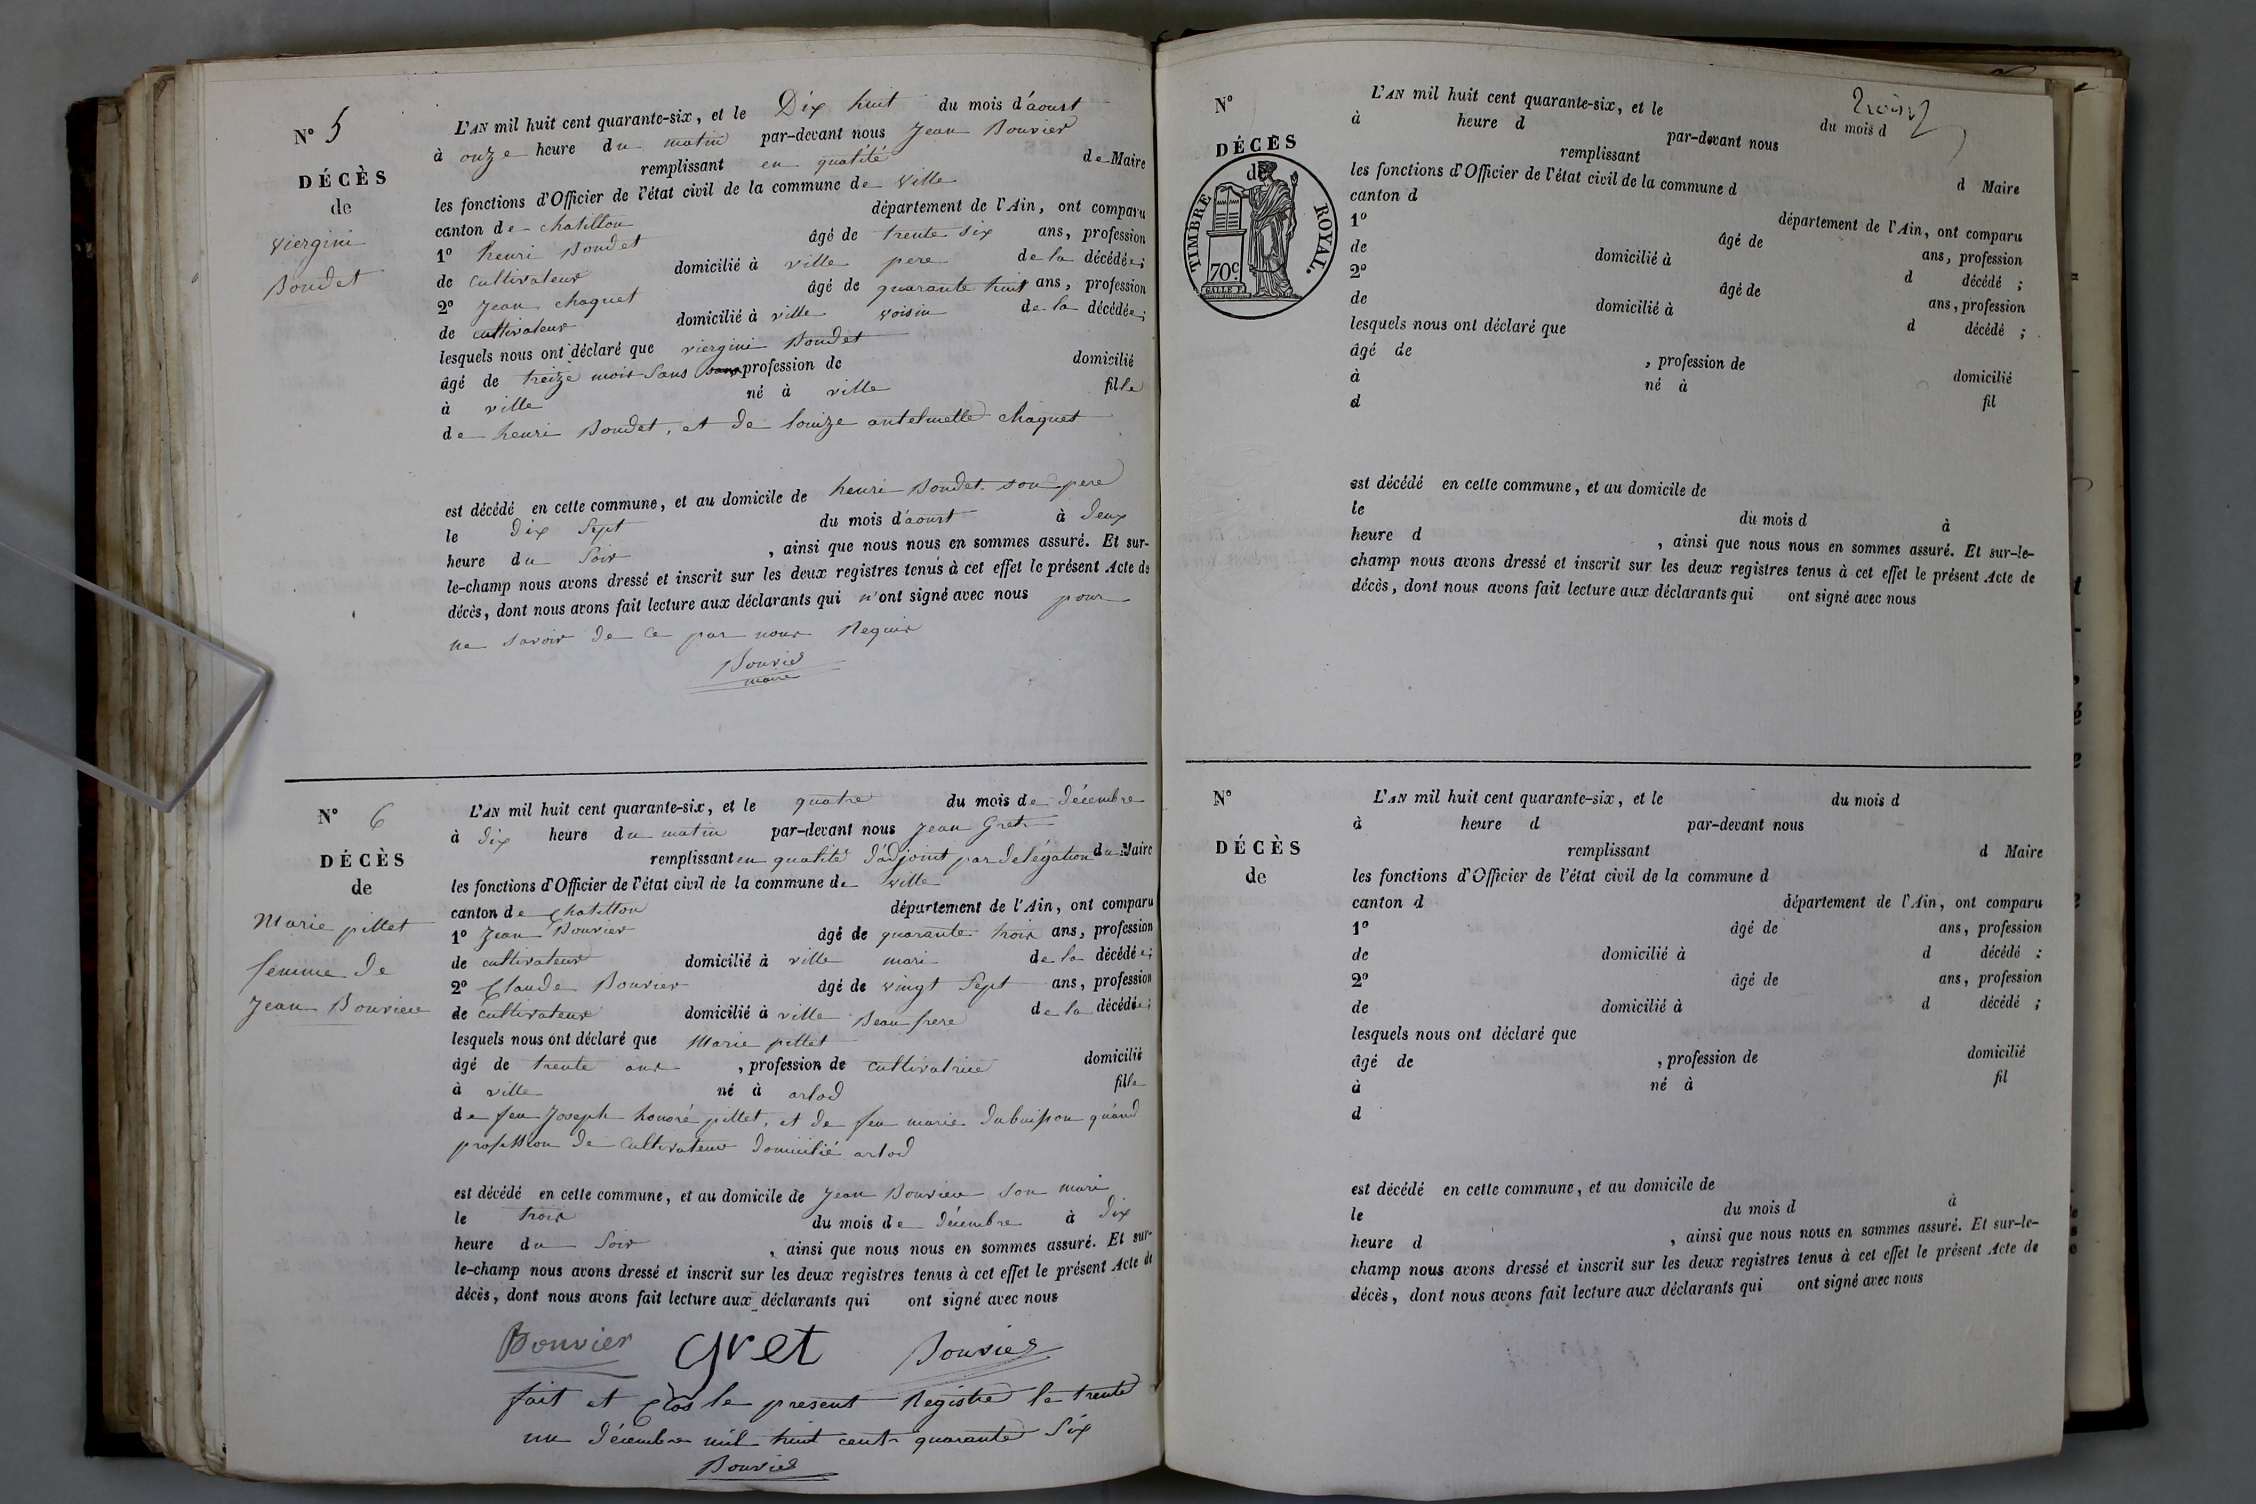 N° 5
DÉCÈS
de
viergini
Boudet
L'AN mil huit cent quarante-six, et le Dix huit du mois d'aoust
à onze heure du matin par-devant nous Jean Bouvier
remplissant en qualité de Maire
les fonctions d'Officier de l'état civil de la commune de ville
canton de chatillon département de l'Ain, ont comparu
1° henri Boudet âgé de trente six ans, profession
de cultivateur domicilié à ville pere de la décédée;
2° Jean chaquet âgé de quarante huit ans, profession
de cultivateur domicilié à ville voisin de la décédée;
lesquels nous ont déclaré que viergini Boudet
âgé de treize mois sans profession de domicilié
à ville né à ville fille
de henri Boudet, et de louize antelmette chaquet
est décédé en cette commune, et au domicile de henri Boudet son pere
le dix sept du mois d'aoust à deux
heure du soir, ainsi que nous nous en sommes assuré. Et sur-
le-champ nous avons dressé et inscrit sur les deux registres tenus à cet effet le présent Acte de
décès, dont nous avons fait lecture aux déclarants qui n'ont signé avec nous pour
ne savoir de ce par nous Requis
Bouvier
maire
N° 6
DÉCÈS
de
Marie pillet
femme de
Jean Bouvier
L'AN mil huit cent quarante-six, et le quatre du mois de décembre
à dix heure du matin par-devant nous Jean Gret
remplissant en qualité d'adjoint par delégation du Maire
les fonctions d'Officier de l'état civil de la commune de ville
canton de chatillon département de l'Ain, ont comparu
1° Jean Bouvier âgé de quarante trois ans, profession
de cultivateur domicilié à ville mari de la décédée;
2° Claude Bouvier âgé de vingt sept ans, profession
de cultivateur domicilié à ville Beau frere de la décédée;
lesquels nous ont déclaré que Marie pillet
âgé de trente ans, profession de cultivatrice domicilié
à ville né à arlod fille
de feu Joseph honoré pillet, et de feu marie dubuisson quand
profession de cultivateur domicilié arlod
est décédé en cette commune, et au domicile de Jean Bouvier son mari
le trois du mois de décembre à dix
heure du soir, ainsi que nous nous en sommes assuré. Et sur-
le-champ nous avons dressé et inscrit sur les deux registres tenus à cet effet le présent Acte de
décès, dont nous avons fait lecture aux déclarants qui ont signé avec nous
Bouvier gret Bouvier
fait et clos le present Registre le trente
un décembre mil huit cent quarante six
Bouvier
N°
DÉCÈS
de
TIMBRE ROYAL.
70 c.
L'AN mil huit cent quarante-six, et le du mois d
à heure d par-devant nous
remplissant d Maire
les fonctions d'Officier de l'état civil de la commune d
canton d département de l'Ain, ont comparu
1° âgé de ans, profession
de domicilié à d décédé ;
2° âgé de ans, profession
de domicilié à d décédé ;
lesquels nous ont déclaré que
âgé de , profession de domicilié
à né à fil
d
est décédé en cette commune, et au domicile de
le du mois d à
heure d , ainsi que nous nous en sommes assuré. Et sur-le-
champ nous avons dressé et inscrit sur les deux registres tenus à cet effet le présent Acte de
décès, dont nous avons fait lecture aux déclarants qui ont signé avec nous
N°
DÉCÈS
de
L'AN mil huit cent quarante-six, et le du mois d
à heure d par-devant nous
remplissant d Maire
les fonctions d'Officier de l'état civil de la commune d
canton d département de l'Ain, ont comparu
1° âgé de ans, profession
de domicilié à d décédé :
2° âgé de ans, profession
de domicilié à d décédé ;
lesquels nous ont déclaré que
âgé de , profession de domicilié
à né à fil
d
est décédé en cette commune, et au domicile de
le du mois d à
heure d , ainsi que nous nous en sommes assuré. Et sur-le-
champ nous avons dressé et inscrit sur les deux registres tenus à cet effet le présent Acte de
décès, dont nous avons fait lecture aux déclarants qui ont signé avec nous